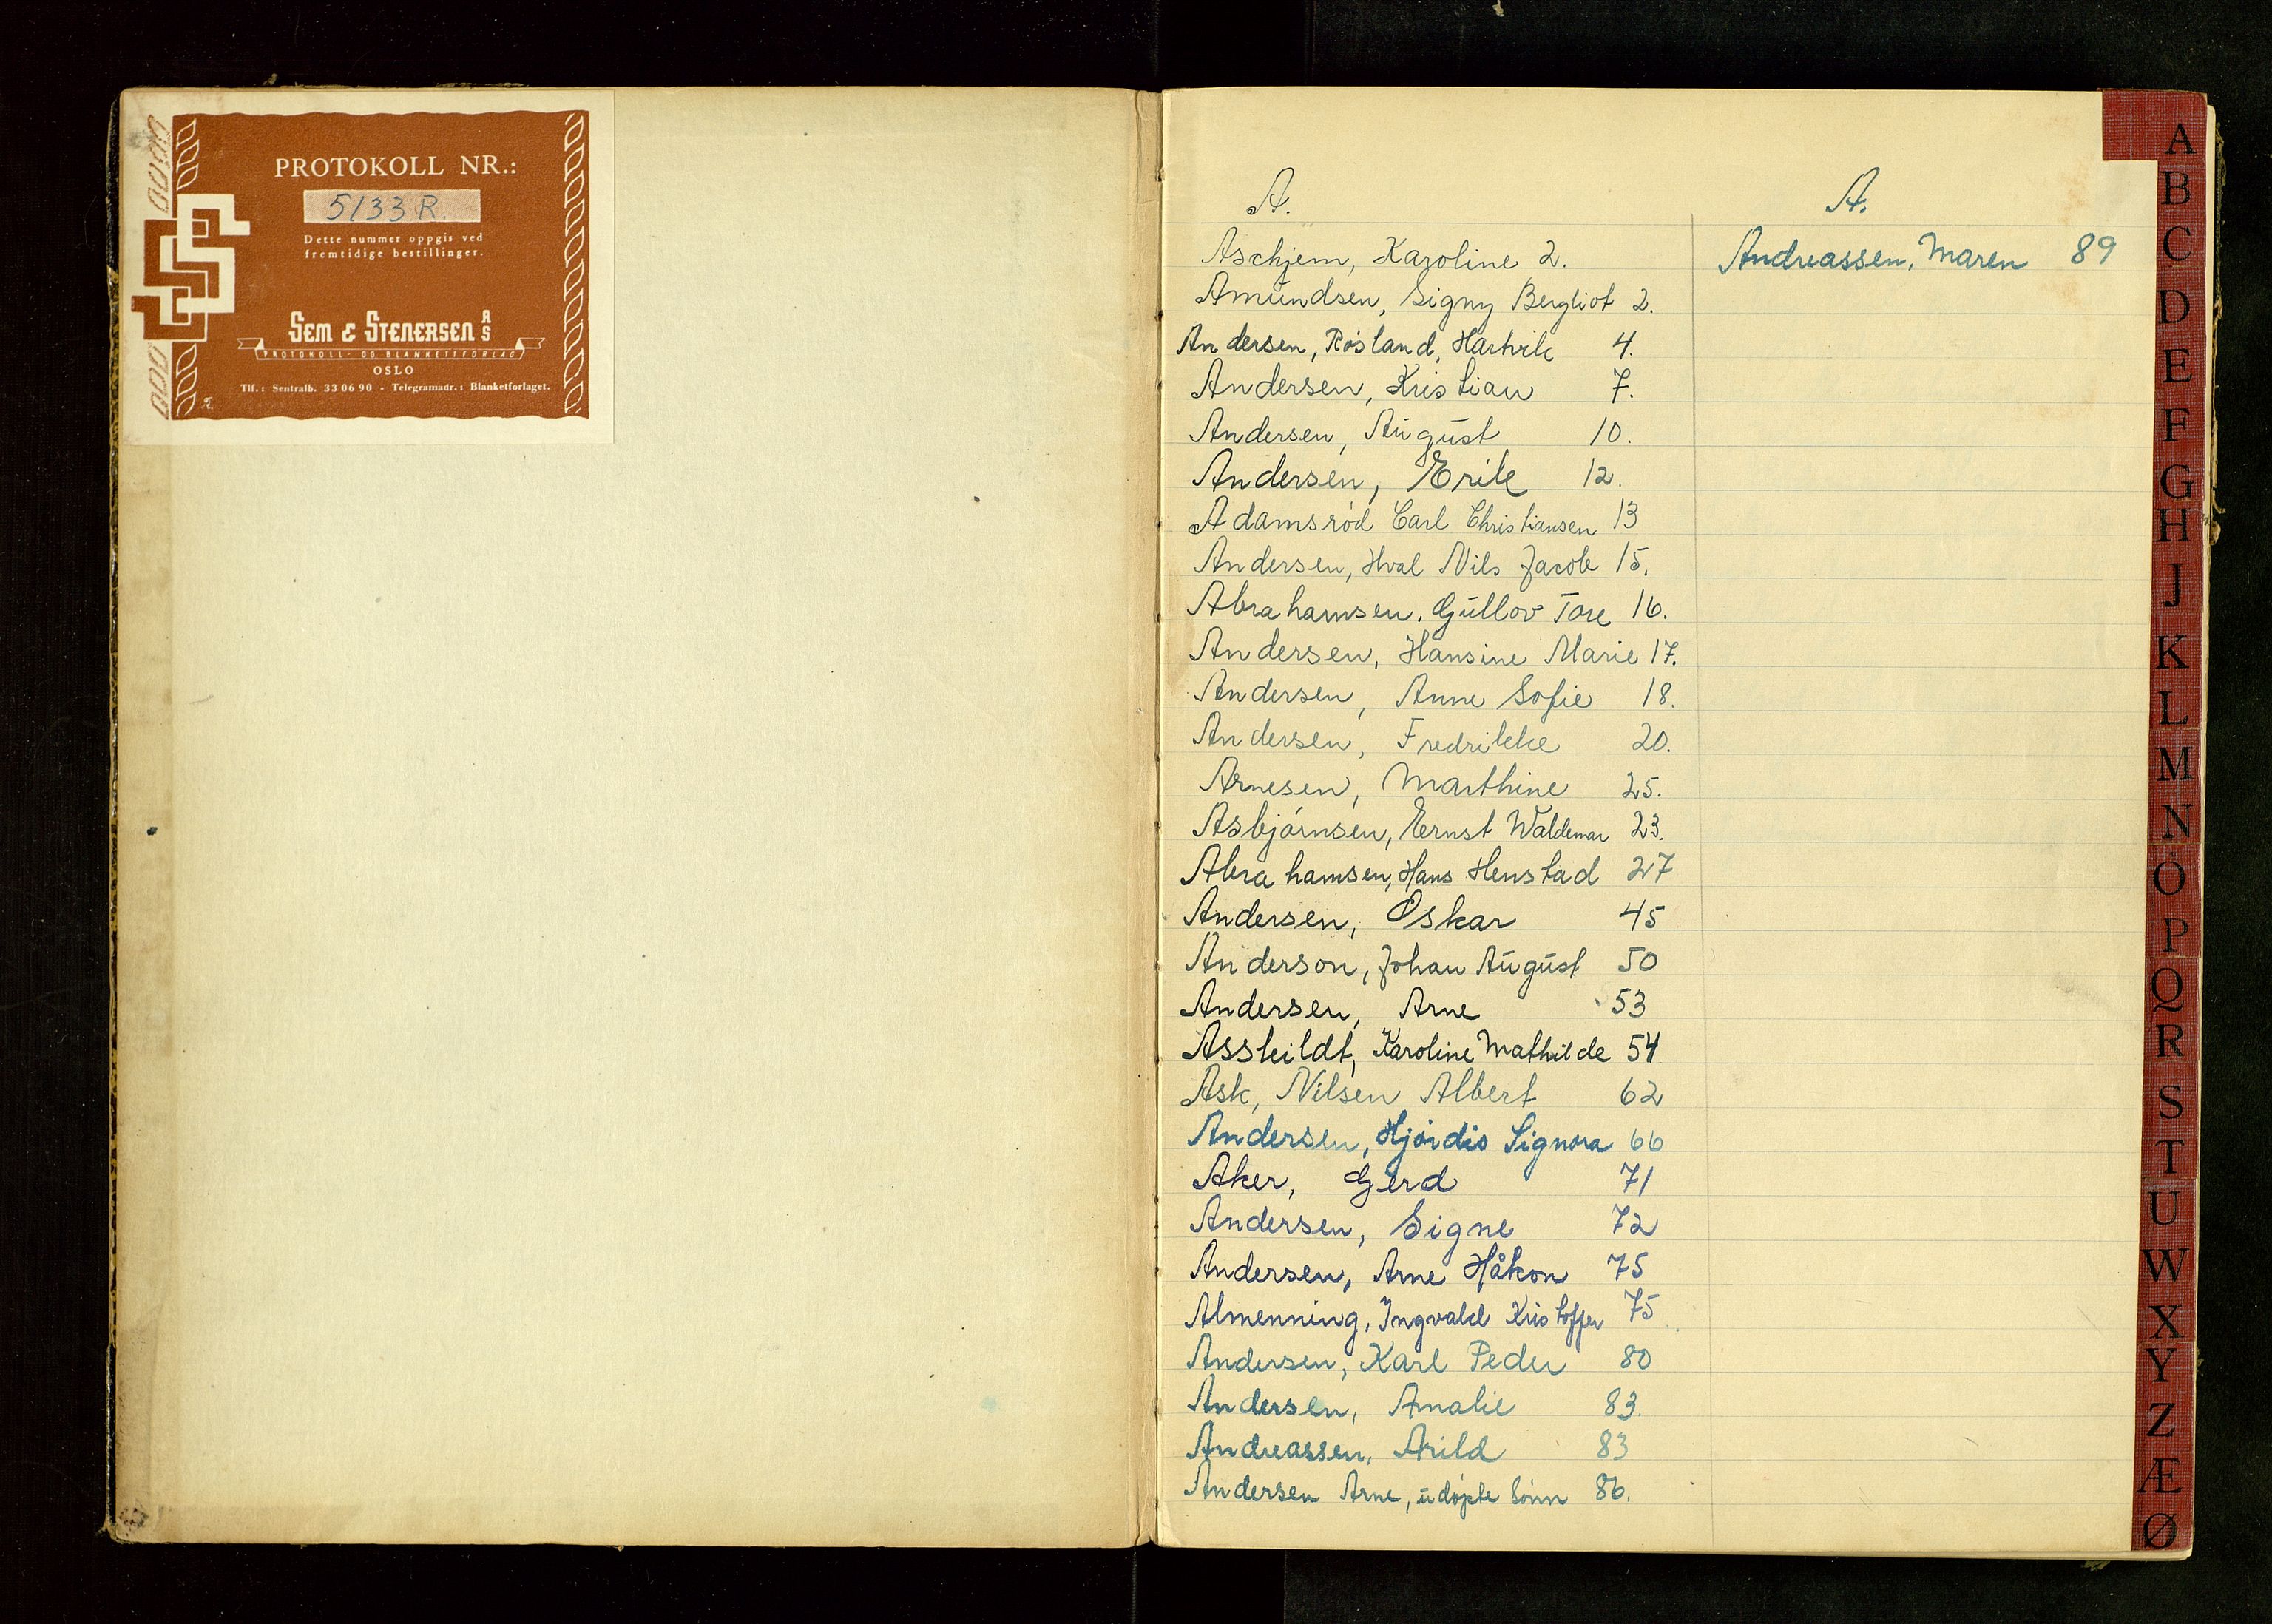 PROTOKOLL NR.:
5133 R.
Dette nummer oppgis ved
fremtidige bestillinger.
SEM & STENERSEN A/S
PROTOKOLL- OG BLANKETTFORLAG
OSLO
Tlf.: Sentralb. 33 06 90 - Telegramadr.: Blanketforlaget.
A.
Aschjem, Karoline 2.
Amundsen, Signy Bergliot 2.
Andersen, Røsland, Hartvik 4.
Andersen, Kristian 7.
Andersen, August 10.
Andersen, Erik 12.
Adamsrød Carl Christiansen 13
Andersen, Hval Nils Jacob 15.
Abrahamsen. Gullov Tore 16.
Andersen, Hansine Marie 17.
Andersen, Anne Sofie 18.
Andersen, Fredrikke 20.
Arnesen, Marthine 25.
Asbjørnsen, Ernst Waldemar 23.
Abrahamsen, Hans Henstad 27
Andersen, Oskar 45
Anderson, Johan August 50
Andersen, Arne 53
Asskildt, Karoline Mathilde 54
Ask, Nilsen Albert 62
Andersen, Hjørdis Signora 66
Aker, Gerd 71
Andersen, Signe 72
Andersen, Arne Håkon 75
Almenning, Ingvald Kristoffer 75
Andersen, Karl Peder 80
Andersen, Amalie 83.
Andreassen, Arild 83
Andersen Arne, udøpte sønn 86.
A.
Andreassen, Maren 89
A
B
C
D
E
F
G
H
J
K
L
M
N
O
P
Q
R
S
T
U
W
X
Y
Z
Æ
Ø